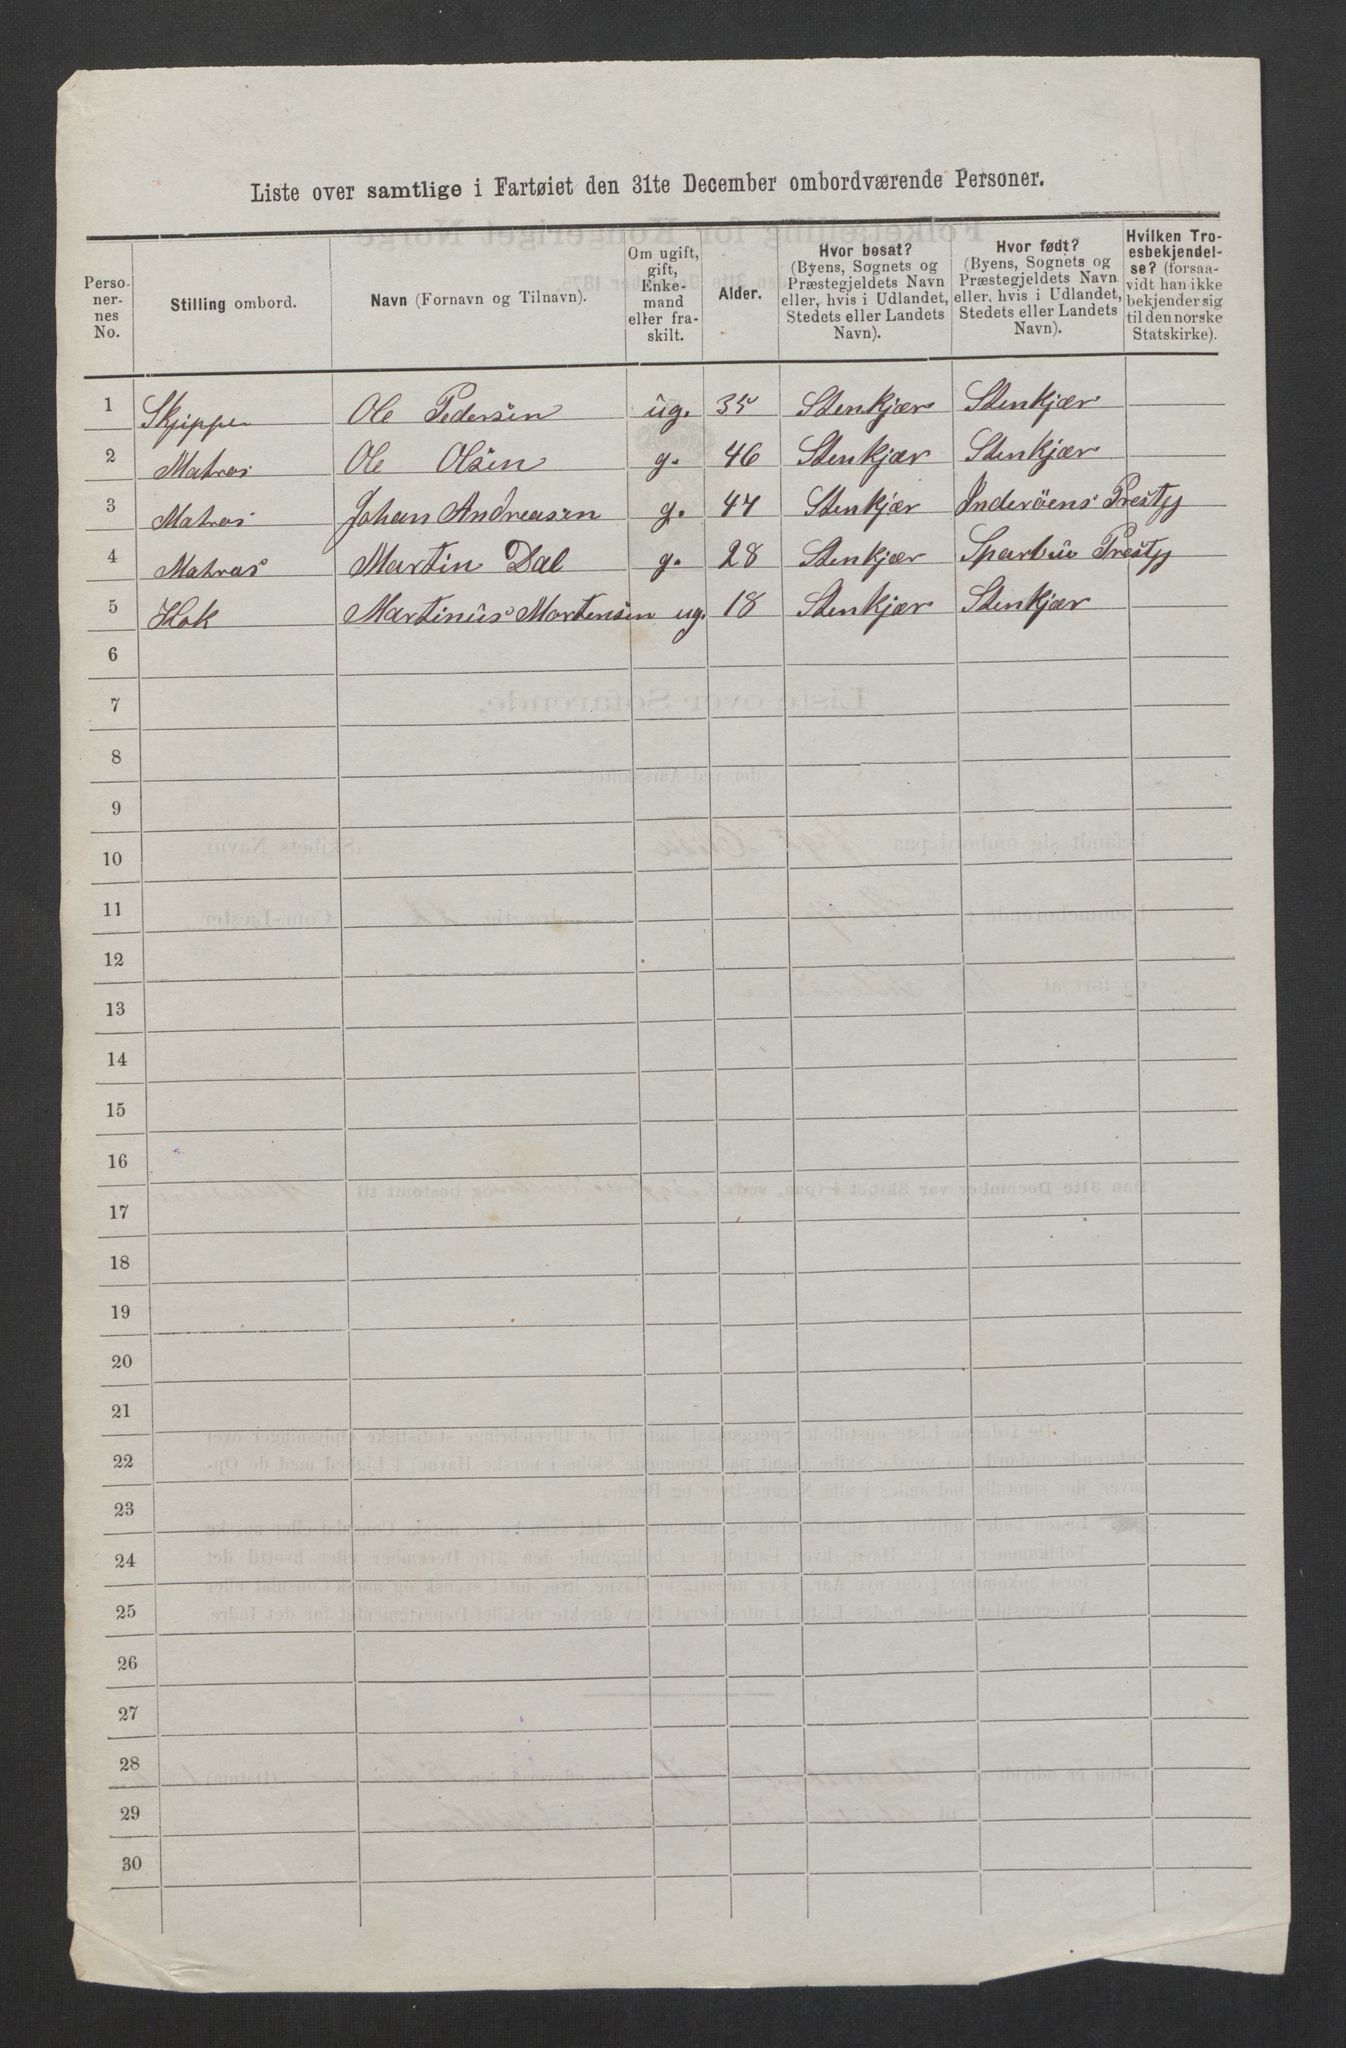 Liste over samtlige i Fartøiet den 31te December ombordværende Personer.
Perso-
ner-
nes
No.
Stilling ombord.
Navn (Fornavn og Tilnavn).
Om ugift,
gift,
Enke-
mand
eller fra-
skilt.
Alder.
Hvor bosat?
(Byens, Sognets og
Præstegjeldets Navn
eller, hvis i Udlandet,
Stedets eller Landets
Navn).
Hvor født?
(Byens, Sognets og
Præstegjeldets Navn
eller, hvis i Udlandet,
Stedets eller Landets
Navn).
Hvilken Tro-
esbekjendel-
se? (forsaa-
vidt han ikke
bekjender sig
til den norske
Statskirke).
1 Skipper Ole Pedersen ug. 35 Stenkjær Stenkjær
2 Matros Ole Olsen g. 46 Stenkjær Stenkjær
3 Matros Johan Andreasen g. 44 Stenkjær Inderöens Prestg
4 Matros Martin Dal g. 28 Stenkjær Sparbu Prestg
5 Kok Martinus Mortensen ug. 18 Stenkjær Stenkjær
6
7
8
9
10
11
12
13
14
15
16
17
18
19
20
21
22
23
24
25
26
27
28
29
30